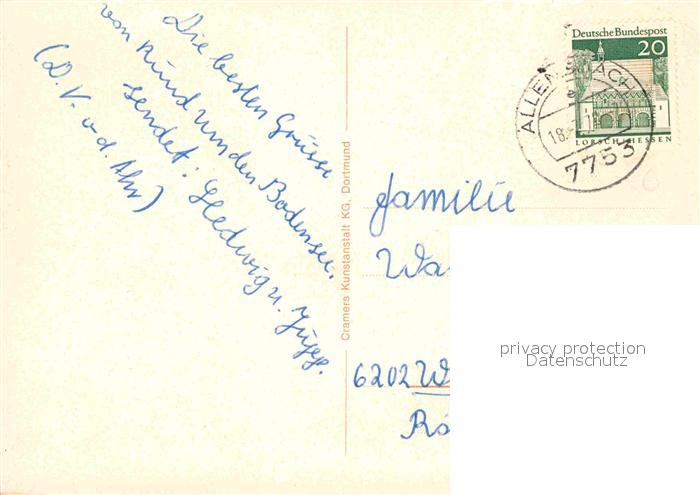 Die besten Grüsse
von Rund um den Bodensee.
sendet: Hedwig u. Jupp.
(D. V. v. d. Ahr)
Cramers Kunstanstalt KG, Dortmund
Deutsche Bundespost
20
LORSCH/HESSEN
ALLENSBACH
18.
7753
Familie
Wa
6202 W
privacy protection
Datenschutz